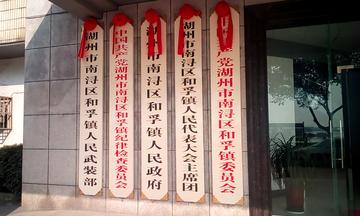 湖州市南浔区和孚镇人民武装部
中国共产党湖州市南浔区和孚镇纪律检查委员会
湖州市南浔区和孚镇人民政府
湖州市南浔区和孚镇人民代表大会主席团
中国共产党湖州市南浔区和孚镇委员会